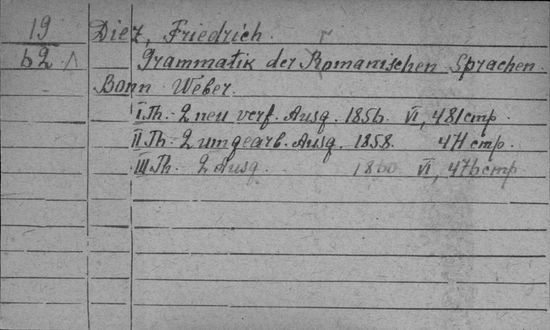 19 Diez, Friedrich.
62 Grammatik der Romanischen Sprachen.
Bonn Weber.
I Th. 2 neu verf. Ausg. 1856. VI, 481 стр.
II Th. 2 umgearb. Ausg. 1858. 471 стр.
III Th. 2 Ausg. 1860 VI, 476 стр